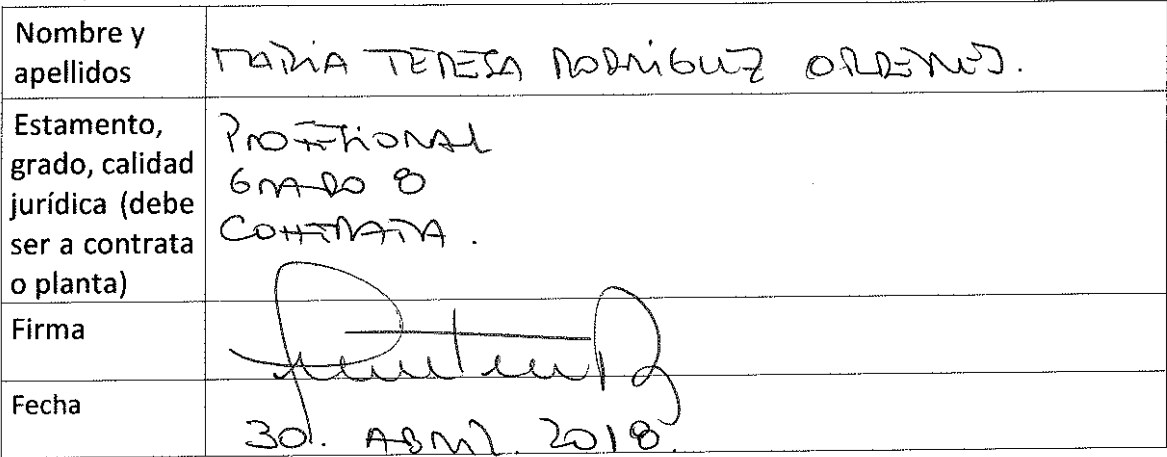 Nombre y
apellidos
MARIA TERESA RODRIGUEZ ORDENES.
Estamento,
grado, calidad
jurídica (debe
ser a contrata
o planta)
PROFESIONAL
GRADO 8
CONTRATA.
Firma
Fecha
30. ABRIL. 2018.